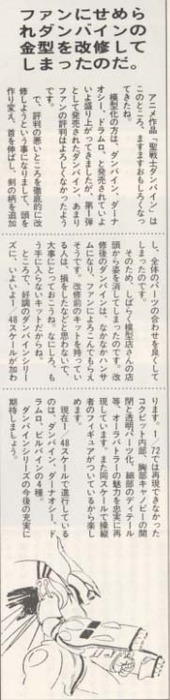 ファンにせめら
れダンバインの
金型を改修して
しまったのだ。
アニメ作品「聖戦士ダンバイン」は
このところ、ますますおもしろくなっ
てきたね。
模型化の方は、ダンバイン、ダーナ
オシー、ドラムロ、と発売されていよ
いよ盛り上がってきましたが、第1弾
のダンバイン、あまり
ファンの評判はよろしくなかったよう
で、評判の悪いところを徹底的に改
修しようという事になりまして、頭を
作り変え、首を伸ばし、剣の柄を追加
し、全体のパーツの合わせを良くして
しまったのです。
そのため、しばらく模型店さんの店
頭から姿を消してしまったのです。改
修後のダンバインは、なかなかハンサ
ムになり、ファンによろこんでもらえ
そうです。改修前のキットを持ってい
る人は、損をしたなどと思わないで、
大事にとっておこうね。なにしろ、も
う手に入らないキットだからね。
ところで、好調のダンバインシリー
ズに、いよいよ1/48スケールが加わ
ります。1/72では再現できなかった
コクピット内部、胸部キャノピーの開
閉と透明パーツ化、細部のディテール
等、オーラバトラーの魅力を忠実に再
現しています。また同スケールで操縦
者のフィギュアがついているから楽し
めます。
現在1/48スケールで進行している
のは、ダンバイン、ダーナオシー、ド
ラムロ、ビルバインの4種。
ダンバインシリーズの今後の充実に
期待しましょう。